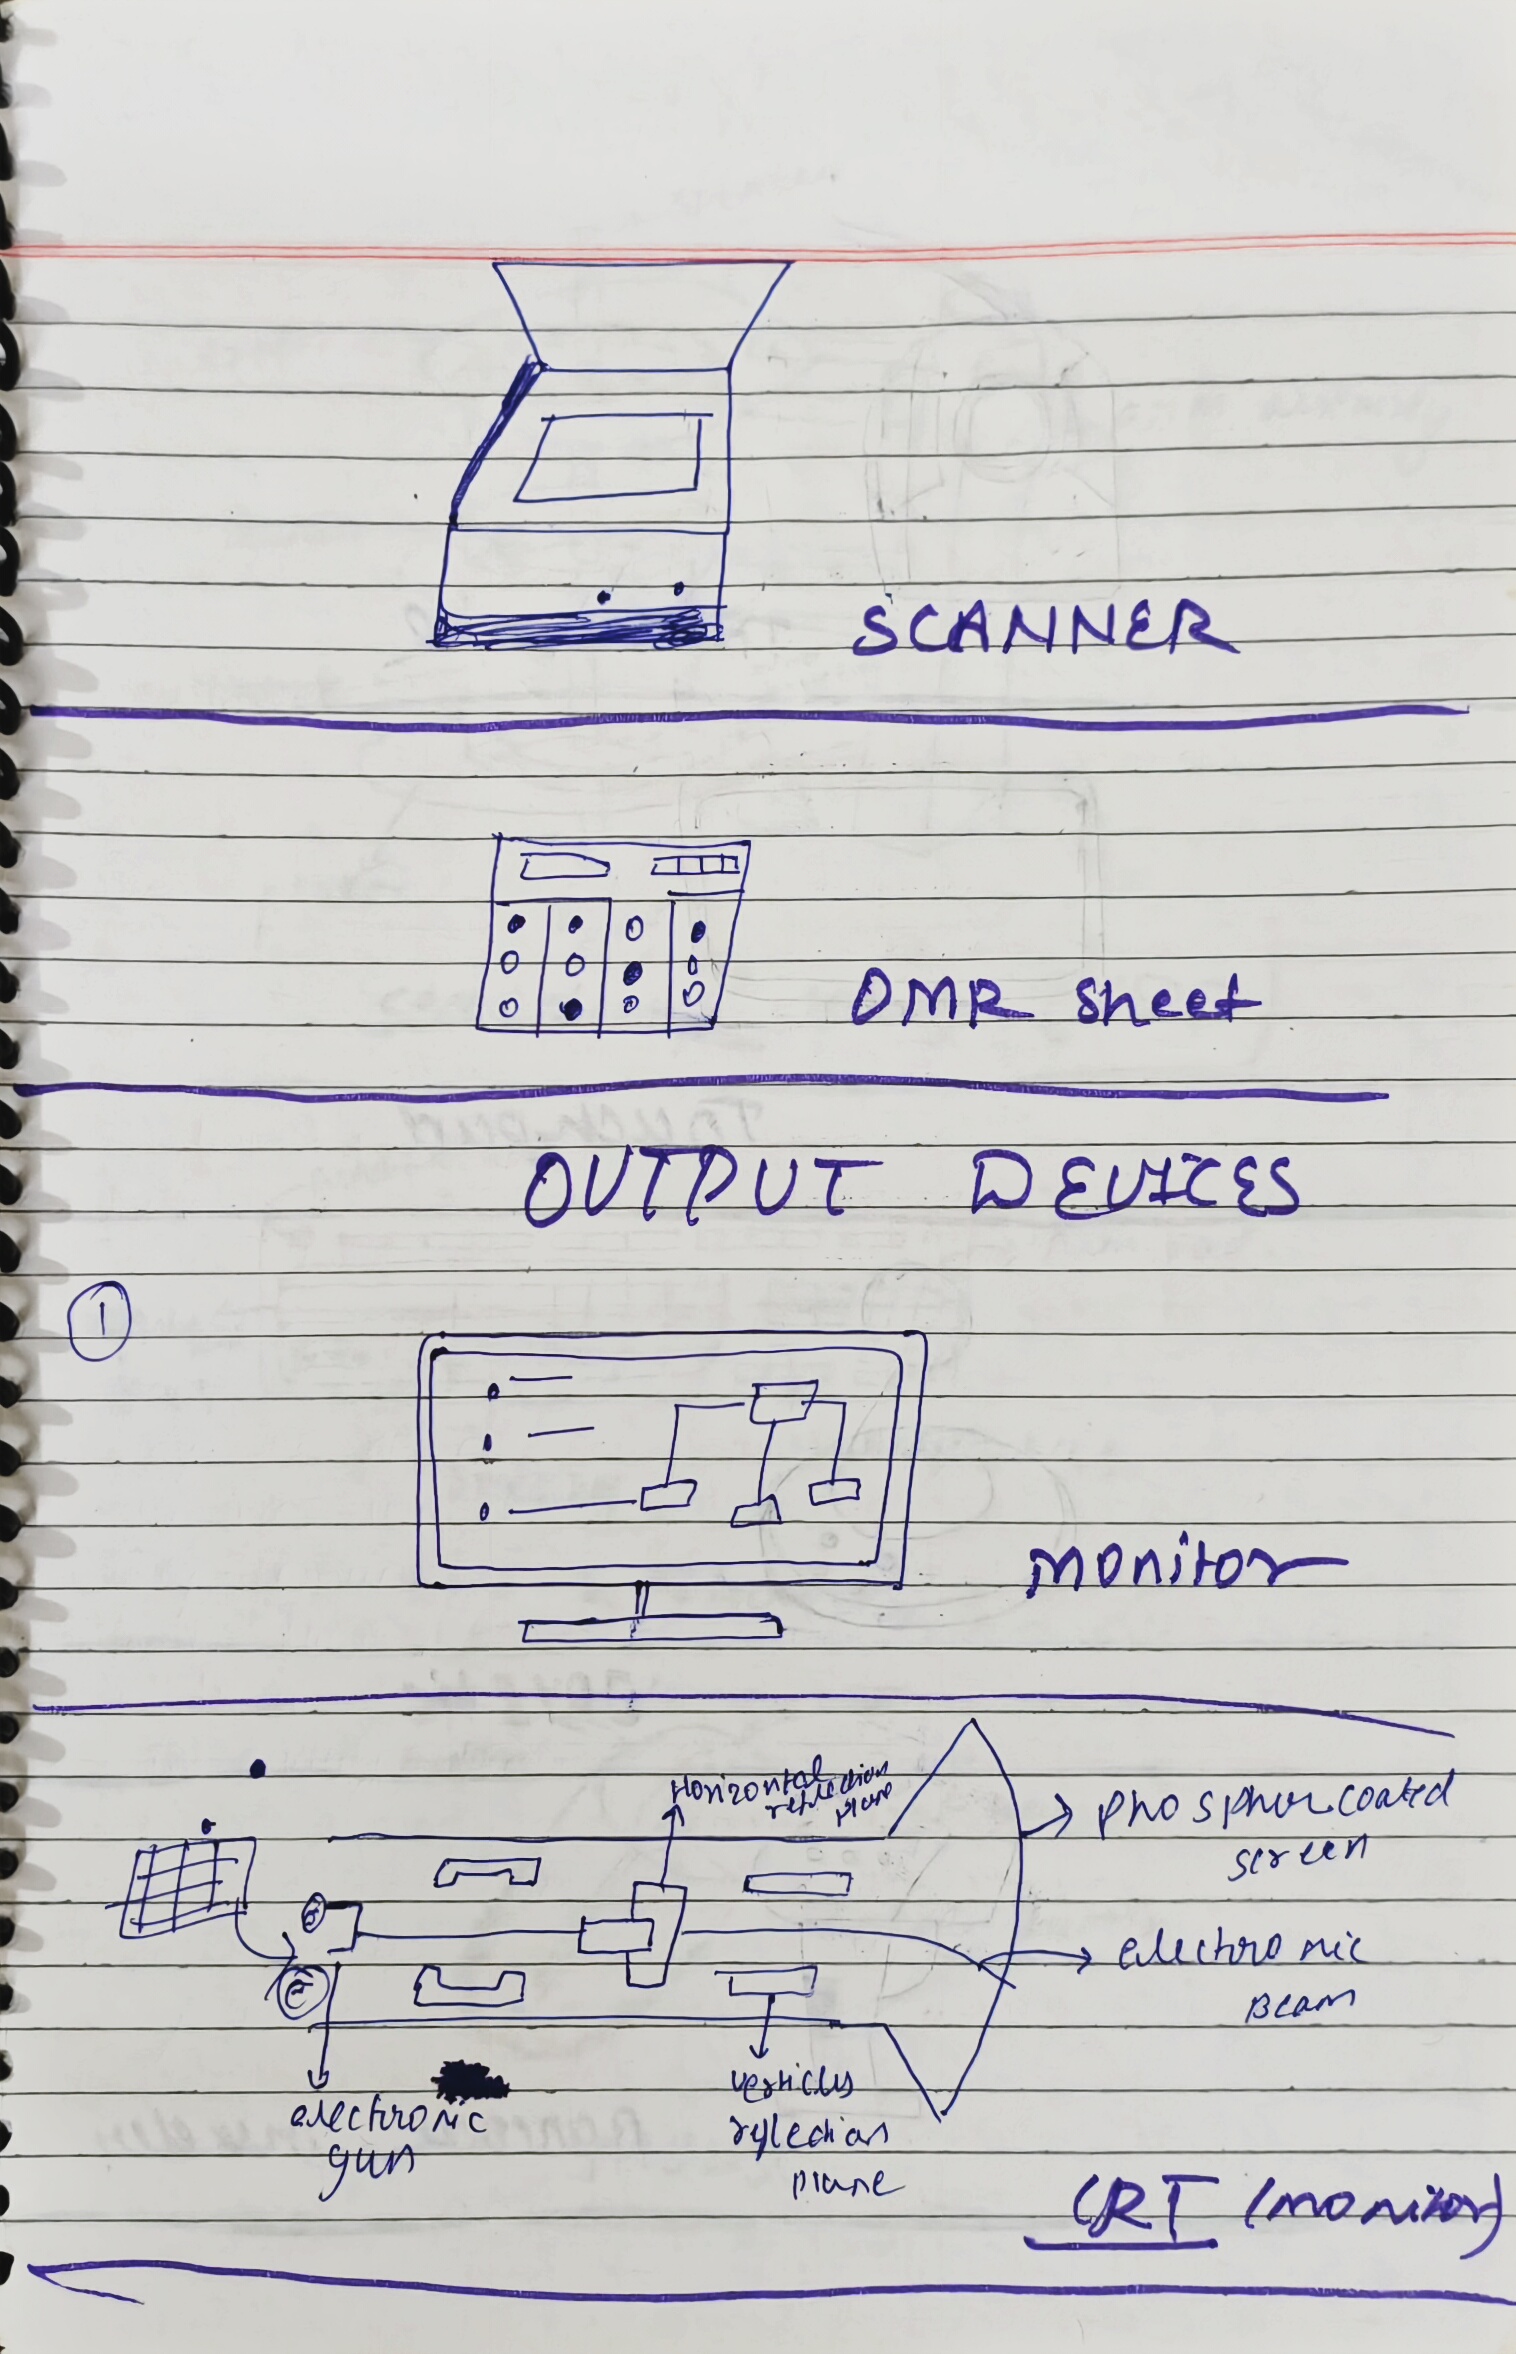 SCANNER
OMR sheet
OUTPUT DEVICES
1
monitor
Horizontal
reflection
plane
phosphor coated
screen
electronic
Beam
electronic
gun
verticles
reflection
plane
CRT (monitor)